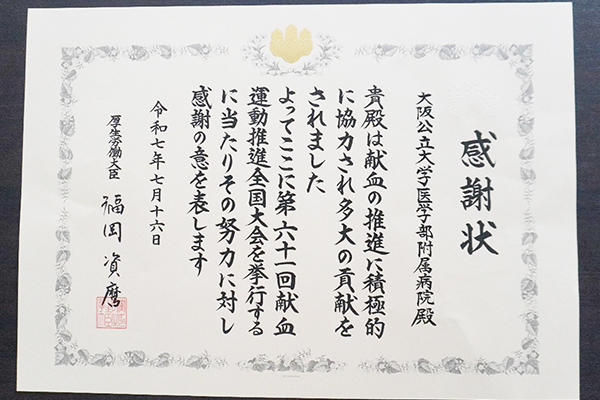 感謝状
大阪公立大学医学部附属病院殿
貴殿は献血の推進に積極的
に協力され多大の貢献を
されました
よってここに第六十一回献血
運動推進全国大会を挙行する
に当たりその努力に対し
感謝の意を表します
令和七年七月十六日
厚生労働大臣
福岡資麿